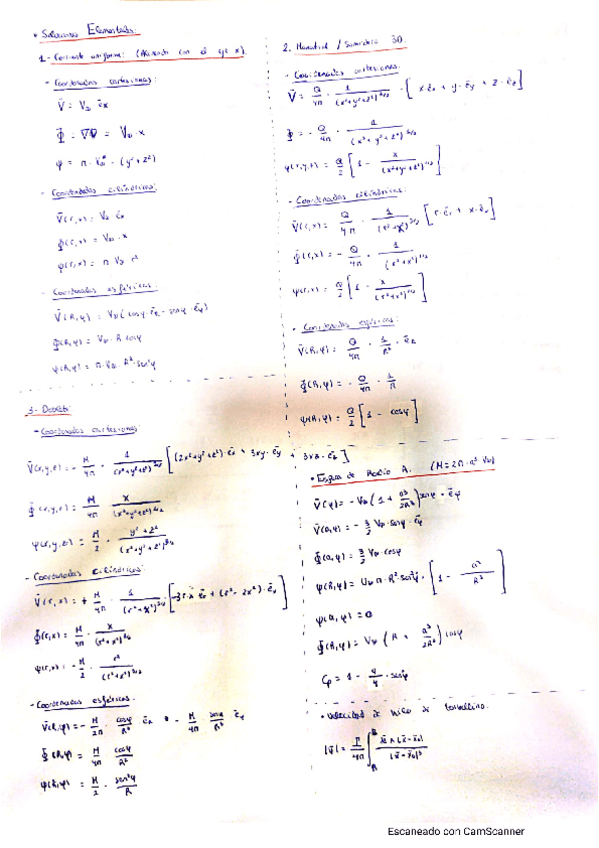 • Soluciones Elementales:
1.- Corriente uniforme: (Alineada con el eje x).
- Coordenadas cartesianas:
V̄ = V∞ ēx
Φ = ∇Φ = V∞ · x
φ = π · V∞ · (y² + z²)
- Coordenadas cilíndricas:
V̄(r,x) = V∞ · ēx
Φ(r,x) = V∞ · x
φ(r,x) = π V∞ r²
- Coordenadas esféricas:
V̄(R,φ) = V∞ (cosφ · ēR - senφ · ēφ)
Φ(R,φ) = V∞ · R cosφ
φ(R,φ) = π · V∞ · R² · sen²φ
2. Manantial / Sumidero 3D.
- Coordenadas cartesianas:
V̄ = Q/4π · 1/(x²+y²+z²)^3/2 · [x·ēx + y·ēy + z·ēz]
Φ = - Q/4π · 1/(x²+y²+z²)^1/2
φ(x,y,z) = Q/2 [1 - x/(x²+y²+z²)^1/2]
- Coordenadas cilíndricas:
V̄(r,x) = Q/4π · 1/(r²+x²)^3/2 [r·ēr + x·ēx]
Φ(r,x) = - Q/4π · 1/(r²+x²)^1/2
φ(r,x) = Q/2 [1 - x/(r²+x²)^1/2]
• Coordenadas esféricas:
V̄(R,φ) = Q/4π · 1/R² · ēR
Φ(R,φ) = - Q/4π · 1/R
φ(R,φ) = Q/2 [1 - cosφ]
3.- Doblete:
- Coordenadas cartesianas
V̄(x,y,z) = - M/4π · 1/(x²+y²+z²)^5/2 [(2x²+y²+z²)·ēx + 3xy·ēy + 3xz·ēz]
Φ(x,y,z) = M/4π · x/(x²+y²+z²)^3/2
φ(x,y,z) = M/2 · y²+z²/(x²+y²+z²)^3/2
- Coordenadas cilíndricas:
V̄(r,x) = + M/4π · 1/(r²+x²)^5/2 · [-3r·x ēr + (r²-2x²)·ēx]
Φ(r,x) = M/4π · x/(r²+x²)^3/2
φ(r,x) = - M/2 · r²/(r²+x²)^3/2
- Coordenadas esféricas:
V̄(R,φ) = - M/2π · cosφ/R³ ēR - M/4π · senφ/R³ ēφ
Φ(R,φ) = M/4π · cosφ/R²
φ(R,φ) = M/2 · sen²φ/R
• Esfera de Radio A. (M = 2π · a³ V∞)
V̄(φ) = - V∞ (1 + a³/2R³) senφ · ēφ
V̄(a,φ) = - 3/2 V∞ · senφ · ēφ
Φ(a,φ) = 3/2 V∞ · cosφ
φ(R,φ) = V∞ π · R² · sen²φ · [1 - a³/R³]
φ(a,φ) = 0
Φ(R,φ) = V∞ (R + a³/2R²) cosφ
Cp = 1 - 9/4 · sen²φ
• Velocidad de hilo de torbellino.
|v̄| = Γ/4π ∫ A B d̄l ∧ (x̄ - x̄0)/|x̄ - x̄0|³
Escaneado con CamScanner